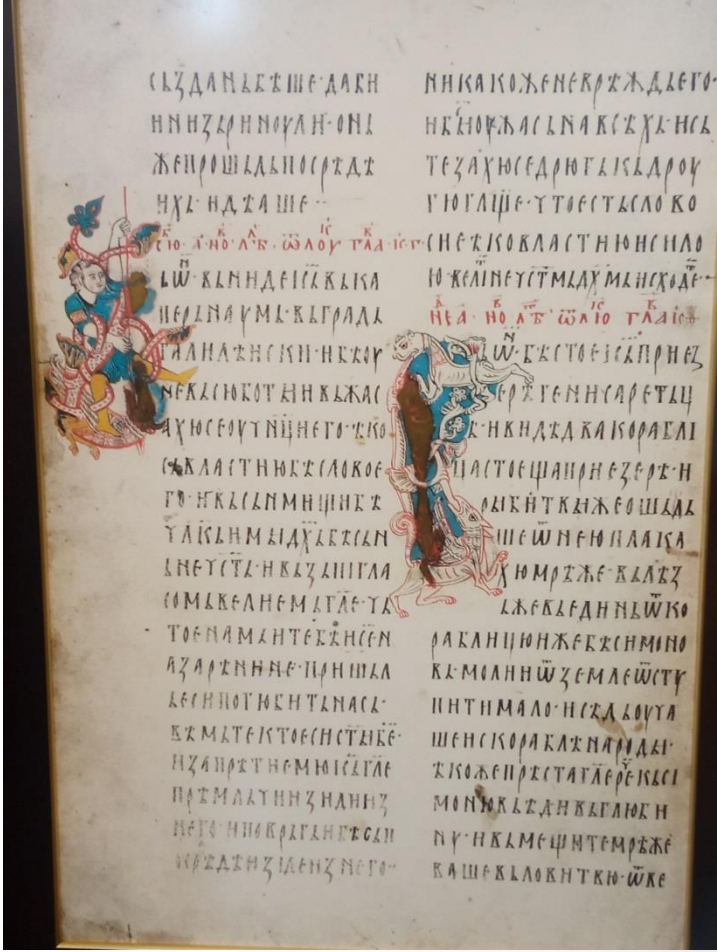 СЬЗДАНЬБѢШЕ·ДАБИ
ИНИЗЬРИНОУЛИ·ОНЬ
ЖЕПРОШЬДЬПОСРѢДѢ
ИХЬ·ИДѢАШЕ··
СЮ·А·НО·Л·Б·ѾЛОУ ГЛА·ІС
ЬѾ·ВЬНИДЕІСЬВЬКА
ПЕРЬНАУМЬ·ВЬГРАДЬ
ГАЛИЛѢИСКИ·ИБѢОУ
ЧЕВЬСЮБОТЫИВЬЖАС
АХЮСЕОУЧНИЦИНЕГО·ѢКО
СЬВЛАСТИЮБѢСЛОВОЕ
ГО·ИВЬСЬНМИЩИБѢ
ЧЛКЬИМЫДХЬБѢСЬН
ЬНЕЧСТЬ·ИВЬЗЬПІГЛА
СОМЬВЕЛИЕМЬГЛЕ·ЧЬ
ТОЕНАМЬИТЕБѢИСЕН
АЗАРѢНИНЕ·ПРИШЬЛ
ЬЕСИПОГЮБИТЬНАСЬ·
ВѢМЬТЕКТОЕСИСТЫБЕ·
ИЗАПРѢТИЕМЮІСЬГЛЕ
ПРѢМЛЬЧИИЗИДИИЗ
НЕГО·ИПОВРЬГЬИБѢСЬП
ОСРѢДѢИЗІДЕИЗНЕГО··
НИКАКОЖЕНЕВРѢЖДЬЕГО·
ИБЫОУЖАСЬНАВСѢХЬ·ИСЬ
ТЕЗАХЮСЕДРЮГЬКЬДРОУ
ГЮГЛЩЕ·ЧТОЕСТЬСЛОВО
СИЕѢКОВЛАСТИЮИСИЛО
Ю·ВЕЛІТНЕЧСТМЬДХМЬИСХОДЕ··
НЕА·НО·Л·Б·ѾЛЮ ГЛА·ІС
ЬѾ·БѢСТОЕІСЬПРИЕЗ
ЕРѢГЕНИСАРЕТЬЦ
Ѣ·ИВИДѢДВАКОРАБЛІ
ЦАСТОЕЩАПРИЕЗЕРѢ·И
РЫБИТВЫЖЕОШЬДЬ
ШЕѾНЕЮПЛАКА
ХЮМРѢЖЕ·ВЬЛѢЗ
ЬЖЕВЬЕДИНЬѾКО
РАБЛИЦЮИЖЕБѢСИМОНО
ВЬ·МОЛИИѾЗЕМЛЕѾСТУ
ПИТИМАЛО·ИСѢДЬОУЧА
ШЕИСКОРАБЛѢНАРОДЫ·
ѢКОЖЕПРѢСТАГЛЕРЕЧКЬСІ
МОНЮВЬѢДИВЬГЛЮБИ
НУ·ИВЬМЕЩИТЕМРѢЖЕ
ВАШЕВЬЛОВИТВЮ·ѾВЕ